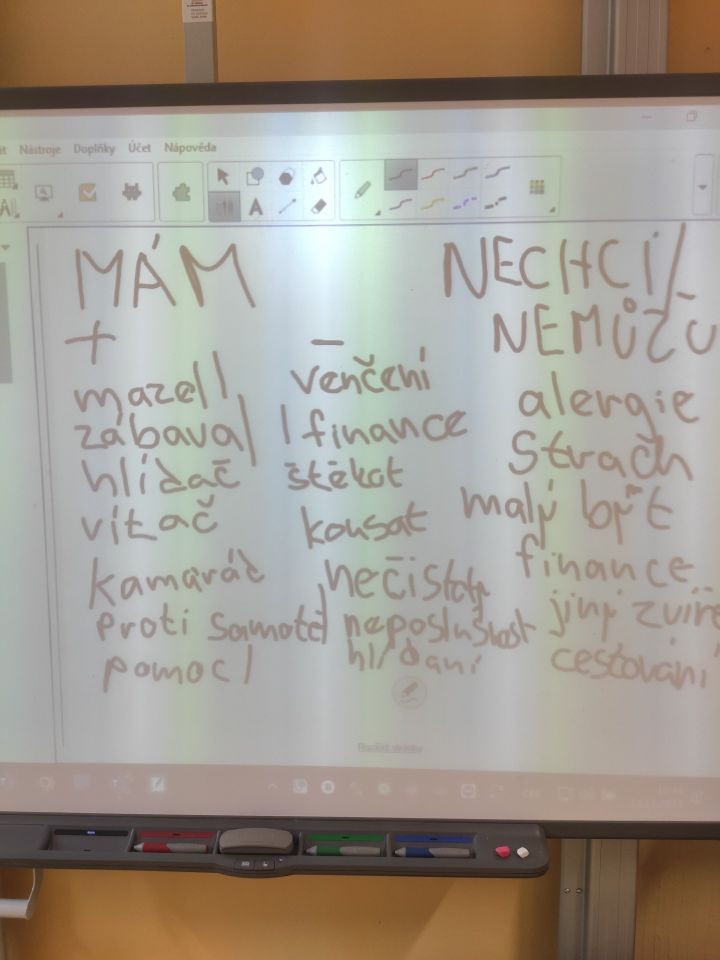 Nástroje Doplňky Účet Nápověda
MÁM
NECHCI/
NEMŮŽU
+
-
mazel
venčení
alergie
zábava
finance
strach
hlídač
štěkot
malý byt
vítač
kousat
finance
kamarád
nečistoty
jiný zvíře
proti samotě
neposlušnost
cestování
pomoc
hlídání